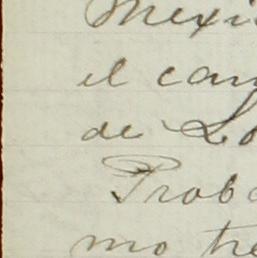 Mexi
el cam
de Lo
Proba
mo tre